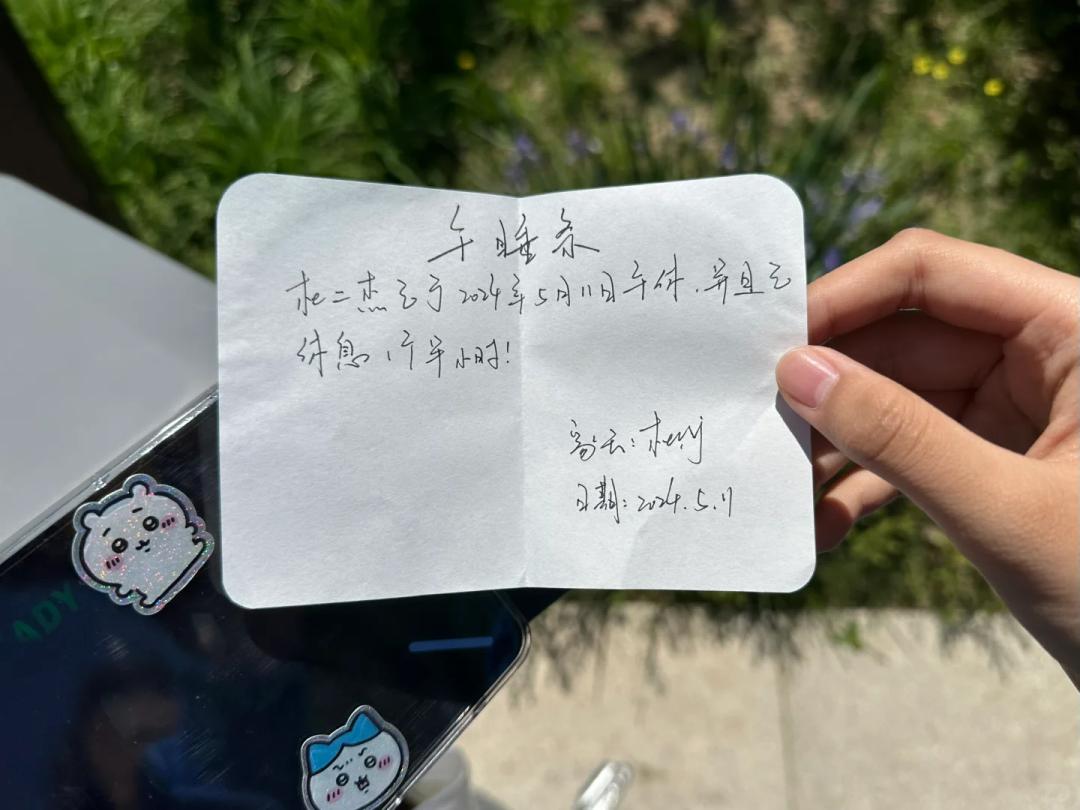 午睡条
杜二杰已于2024年5月11日午休,并且已
休息1个半小时!
日期:2024.5.11
ADY